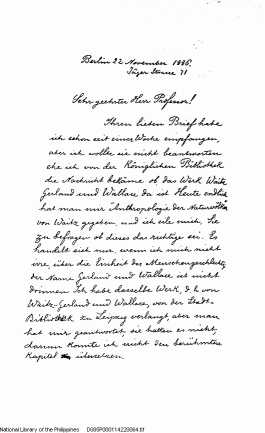 Berlin 22 November 1886.
Jäger Strasse 71
Sehr geehrter Herr Professor!
Ihren lieben Brief habe
ich schon seit einer Woche empfangen,
aber ich wollte sie nicht beantworten
ehe ich von der Königlichen Bibliothek
die Nachricht bekäme ob das Werk Waitz
Gerland und Wallace da ist. Heute endlich
hat man mir Anthropologie der Naturvölker
von Waitz gegeben, und ich eile mich, Sie
zu befragen ob dieses das richtige sei. Es
handelt sich nur, wenn ich mich nicht
irre, über die Einheit des Menschengeschlechts;
der Name Gerland und Wallace ist nicht
drinnen. Ich habe dasselbe Werk, d. h. von
Waitz-Gerland und Wallace, von der Stadt-
Bibliothek zu Leipzig verlangt, aber man
hat mir geantwortet, sie hätten es nicht,
darum konnte ich nicht den berühmten
Kapitel übersetzen.
National Library of the Philippines DG95P00011422B064.tif